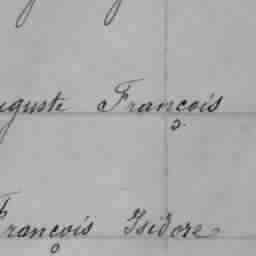 uguste François
François Isidore